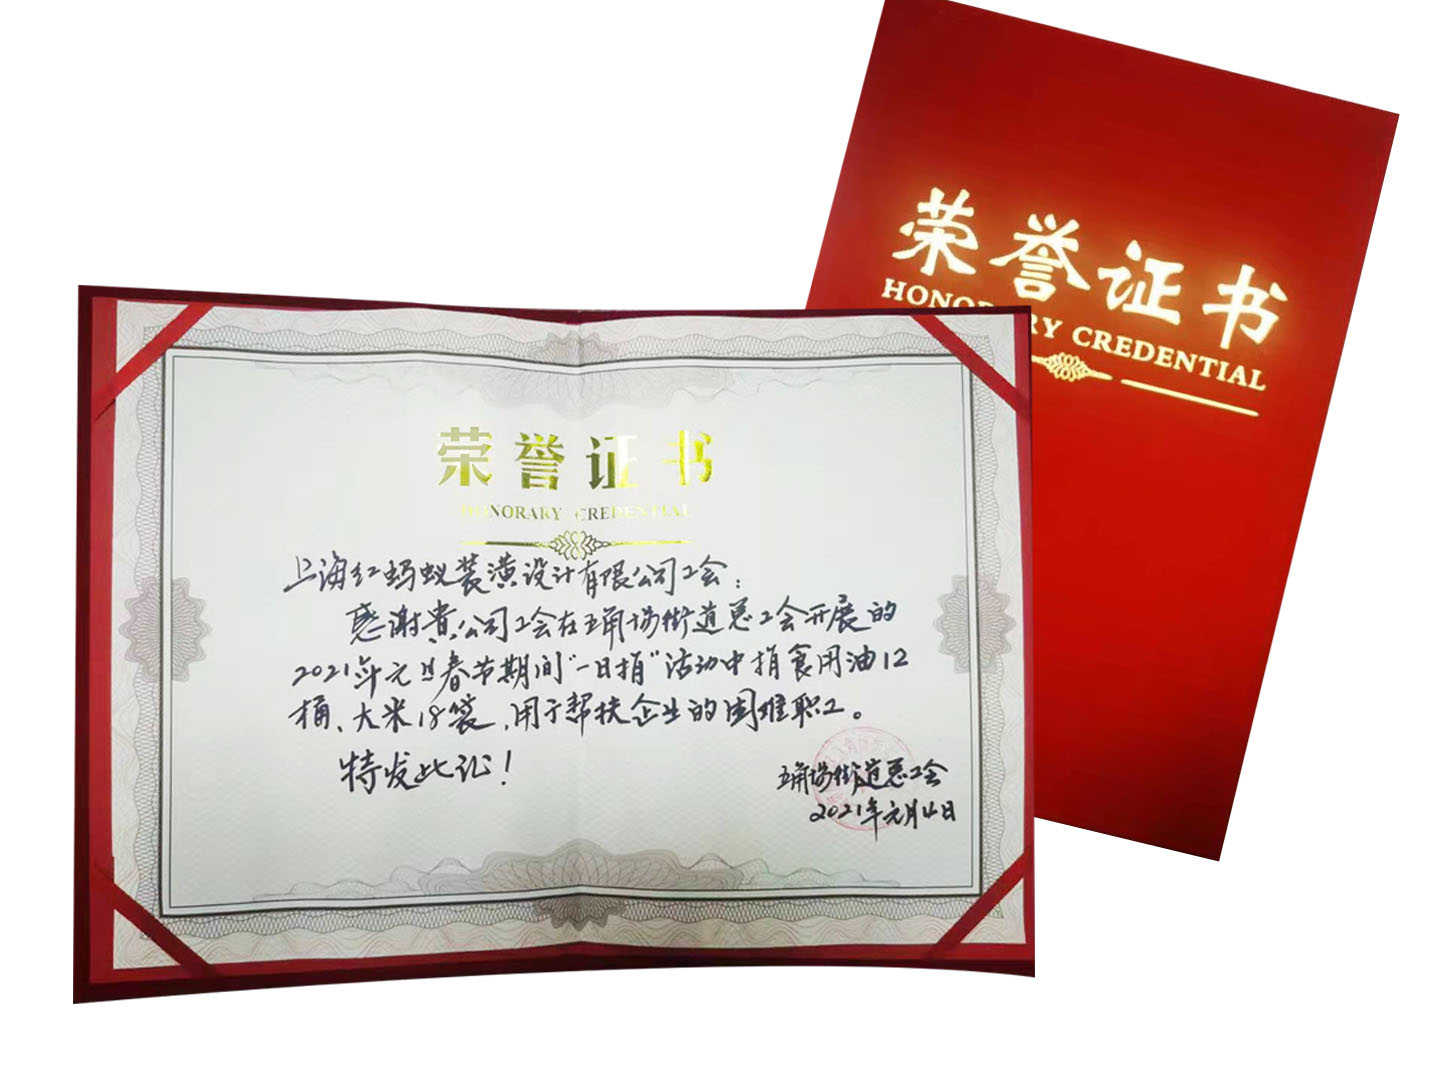 荣誉证书
HONORARY CREDENTIAL
荣誉证书
HONORARY CREDENTIAL
上海红蚂蚁装潢设计有限公司工会：
感谢贵公司工会在五角场街道总工会开展的
2021年元旦春节期间“一日捐”活动中捐食用油12
桶、大米18袋，用于帮扶企业的困难职工。
特发此证！
五角场街道总工会
2021年元月4日